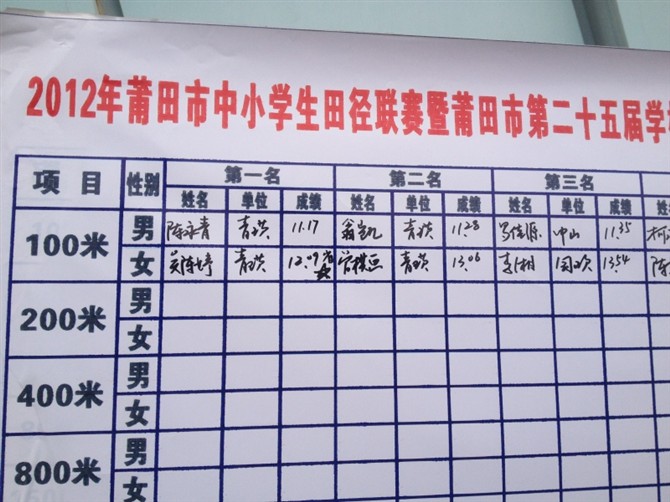 2012年莆田市中小学生田径联赛暨莆田市第二十五届学
项目 性别 第一名 第二名 第三名
姓名 单位 成绩 姓名 单位 成绩 姓名 单位 成绩 姓
100米 男 陈永青 青璜 11.17 翁凯 青璜 11.28 佳源 中山 11.35 柯
女 吴陈婷 青璜 12.09 青璜 13.06 李湘 13.54 陈
200米 男
女
400米 男
女
800米 男
女